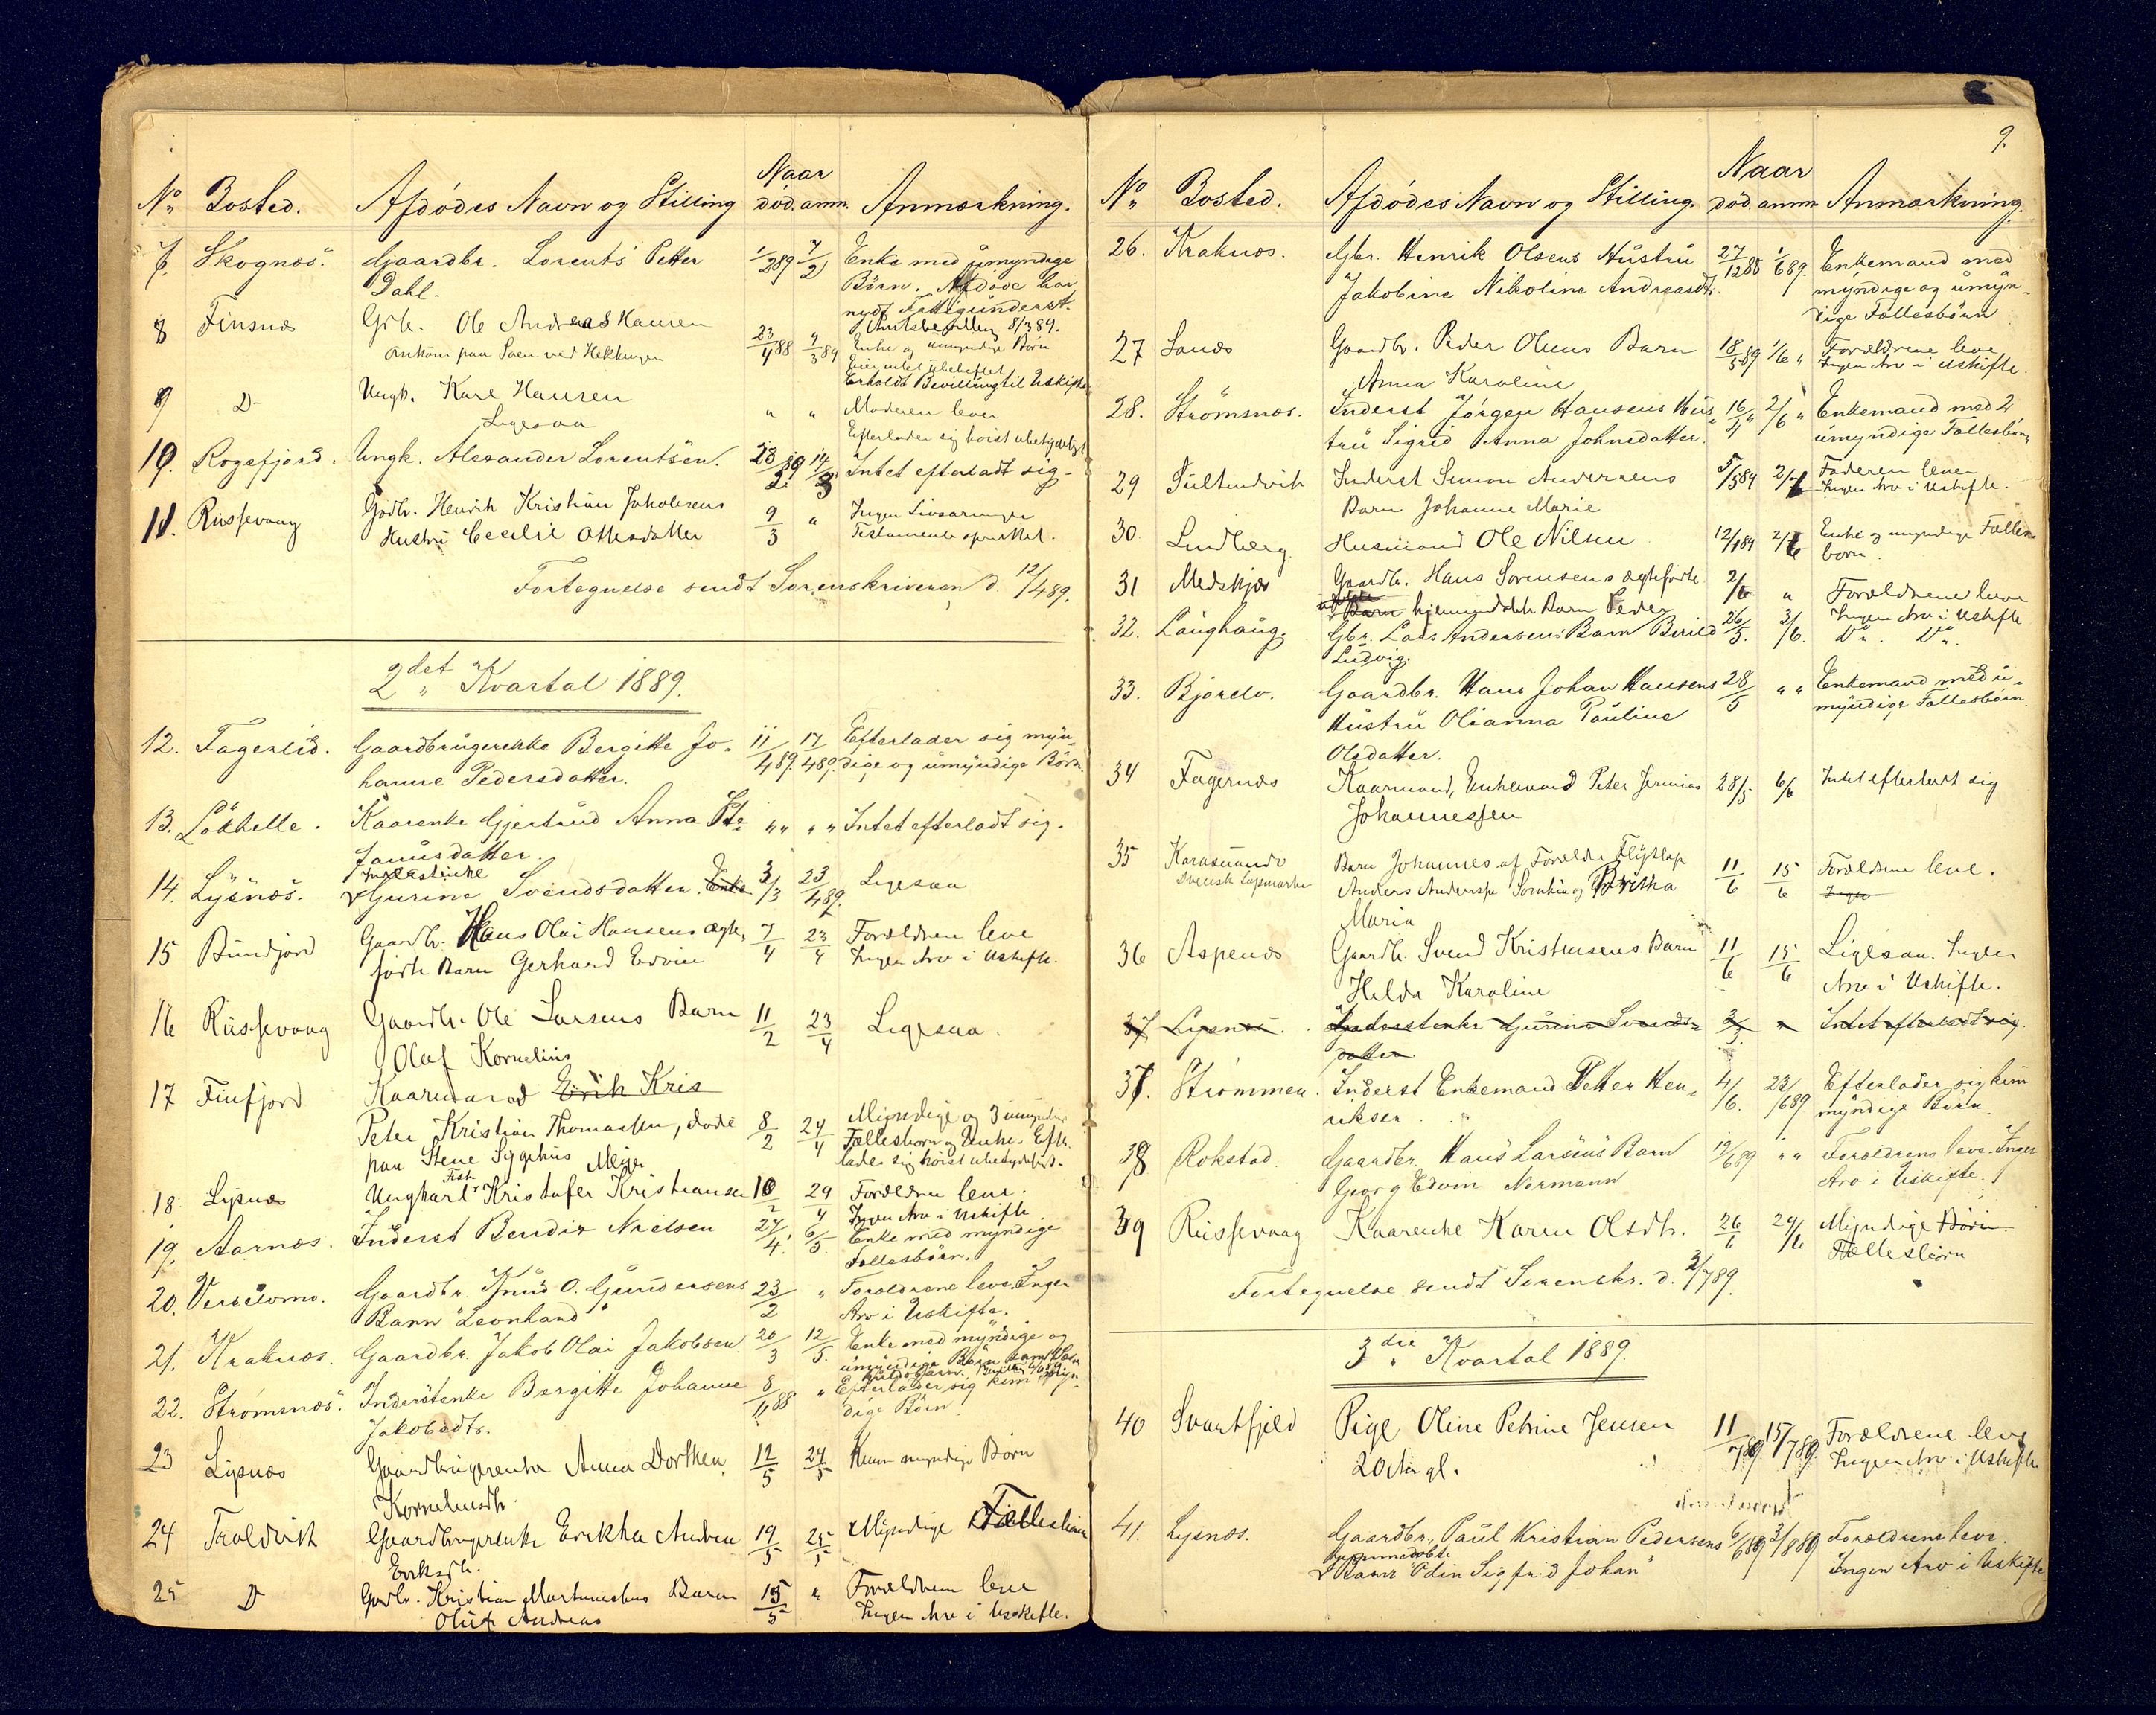 Naar
No Bosted. Afdødes Navn og Stilling død. anm. Anmærkning.
7. Skognæs. Gaardbr. Lorents Petter 1/2 89 7/2 Enke med umyndige
Dahl. Børn. Afdøde har
nydt Fattigunderst.
8 Finsnæs Grb. Ole Andreas Hansen 23/4 88 7/3 89 8/3 89.
omkom paa Søen ved Hekkingen Enke og umyndige Børn
Erholdt Bevilling til Uskifte
9 D- Ungk. Karl Hansen " " Moderen lever
Ligesaa Efterlader sig høist ubetydeligt
10. Rogsfjord. Ungk. Alexander Lorentsen. 23/2 89 14/3 Intet efterladt sig.
11. Russevaag Gdbr. Henrik Kristian Jakobsens 9/3 " Ingen Livsarvinger
Hustru Cecilie Ottesdatter Testamente oprettet.
Fortegnelse sendt Sorenskriveren d. 12/4 89.
2det Kvartal 1889.
12. Fagerlid. Gaardbrugerenke Bergitte Jo- 11/4 89. 17/4 89. Efterlader sig myn-
hanne Pedersdatter. dige og umyndige Børn.
13. Løkhelle. Kaarenke Gjertrud Anna Ste- " " " " Intet efterladt sig.
fanusdatter.
Inderstenke
14. Lysnæs. Gurine Svendsdatter. Enke 3/3 23/4 89. Ligesaa
15 Bundjord Gaardbr. Hans Olai Hansens ægte- 7/4 23/4 Forældrene leve
fødte Barn Gerhard Edvin Ingen Arv i Uskifte.
16 Russevaag Gaardbr. Ole Larsens Barn 11/2 23/4 Ligesaa.
Olaf Kornelius
17 Finfjord Kaarmand Erik Kris
Peter Kristian Thomassen, døde 8/2 24/4 Myndige og 3 umyndige
paa Stene Sygehus Fællesbørn og Enke. Efter-
Meyer lader sig høist ubetydeligt.
18. Lysnæs Ungkarl Kristofer Kristiansen 10/2 24/4 Forældrene leve.
Ingen Arv i Uskifte
19. Aarnæs. Inderst Bendix Nielsen 27/4. 6/5. Enke med myndige
Fællesbørn.
20. Gaardbr. Knud O. Gundersens 23/2 " Forældrene leve. Ingen
Barn "Leonhard" Arv i Uskifte.
21. Kraknæs. Gaardbr. Jakob Olai Jakobsen 20/3 12/5. Enke med myndige og
umyndige Børn samt
22. Strømsnæs. Inderstenke Bergitte Johanne 8/11 88 " Efterlader sig kun myn-
Jakobsdtr. dige Børn
23 Lysnæs Gaardbrugerenke Anna Dorthea 12/5 24/5 Kun myndige Børn
Korneliusdtr.
24 Troldvik Gaardbrugerenke Erikka Andrea 19/5 25/5 Myndige Fællesbørn
Eriksdtr.
25 D Gdbr. Kristian Martinussens Barn 15/5 " Forældrene leve
Oluf Andreas Ingen Arv i Uskifte.
9.
Naar
No Bosted. Afdødes Navn og Stilling. død. anm. Anmærkning.
26. Kraknæs. Gbr. Henrik Olsens Hustru 27/12 88 1/6 89. Enkemand med
Jakobine Nikoline Andreasdtr. myndige og umyn-
dige Fællesbørn
27 Sanæs Gaardbr. Peder Olsens Barn 18/5 89 1/6 " Forældrene leve
Anna Karoline Ingen Arv i Uskifte.
28. Strømsnæs. Inderst Jørgen Hansens Hus- 16/4 " 2/6 " Enkemand med 2
tru Sigrid Anna Johnsdatter. umyndige Fællesbørn
29 Sultindvik Inderst Simon Andersens 5/5 89 2/6 Faderen lever
Barn Johanne Marie Ingen Arv i Uskifte.
30. Lindberg. Husmand Ole Nilsen 12/1 89 2/6 Enke og myndige Fælles-
børn.
31 Medskjær Gaardbr. Hans Sørensens ægtefødte 2/6 " Forældrene leve
Barn hjemmedøbte Barn Peder Ingen Arv i Uskifte
32. Laughaug. Gbr. Lars Andersens Barn 26/5. 3/6. Do. Do.
Ludvig.
33. Bjorelv. Gaardbr. Hans Johan Hansens 28/5 " " Enkemand med u-
Hustru Olianna Pauline myndige Fællesbørn.
Olsdatter.
34 Fagernæs Kaarmand, Enkemand Peter Jermias 28/5 6/6 Intet efterladt sig
Johannessen
35 Karasuando Barn Johannes af Forældre Flytlap 11/6 15/6 Forældrene leve.
Svensk Lapmarke Anders Anderssen og Britha Ingen
Maria
36 Aspenæs Gaardb. Svend Kristensens Barn 11/6 15/6 Ligesaa. Ingen
Helda Karoline Arv i Uskifte.
37 Lysnæs. Inderstenke Gurine Svends- 3/3. " Intet efterladt sig.
datter
37. Strømmen. Inderst Enkemand Petter Hen- 4/6. 23/6 89 Efterlader sig kun
riksen. myndige Børn.
38 Rokstad. Gaardbr. Hans Larsens Barn 19/6 89 " " Forældrene leve. Ingen
Georg Edvin Normann Arv i Uskifte.
39 Russevaag Kaarenke Karen Olsdtr. 26/6 29/6 Myndige Børn
Fællesbørn
Fortegnelse sendt Sorenskr. d. 2/7 89.
3die Kvartal 1889.
40 Svartfjeld Pige Oline Petrine Jensen 11/7 89. 15/7 89. Forældrene leve
20 Aar gl. Ingen Arv i Uskifte.
41. Lysnæs. Gaardbr. Paul Kristian Pedersens 6/6 89 3/8 89 Forældrene leve.
hjemmedøbte
Barn "Odin Sigfrid Johan" Ingen Arv i Uskifte